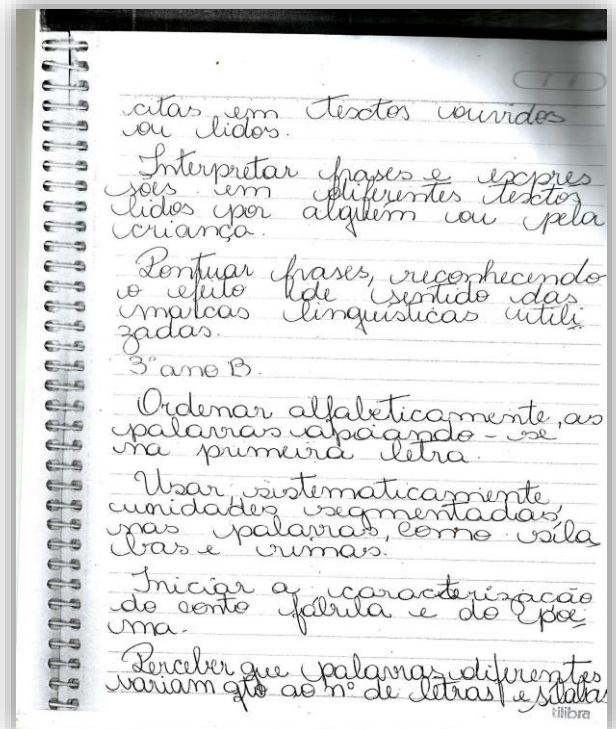 citas em textos ouvidos
ou lidos.
Interpretar frases e expres
sões em diferentes textos
lidos por alguém ou pela
criança.
Pontuar frases, reconhecendo
o efeito de sentido das
marcas linguísticas utili
zadas.
3º ano B.
Ordenar alfabeticamente, as
palavras apoiando-se
na primeira letra.
Usar, sistematicamente
unidades segmentadas,
nas palavras, como síla
bas e rimas.
Iniciar a caracterização
do conto fábula e do poe
ma.
Perceber que palavras diferentes
variam qto ao nº de letras e sílabas
tilibra